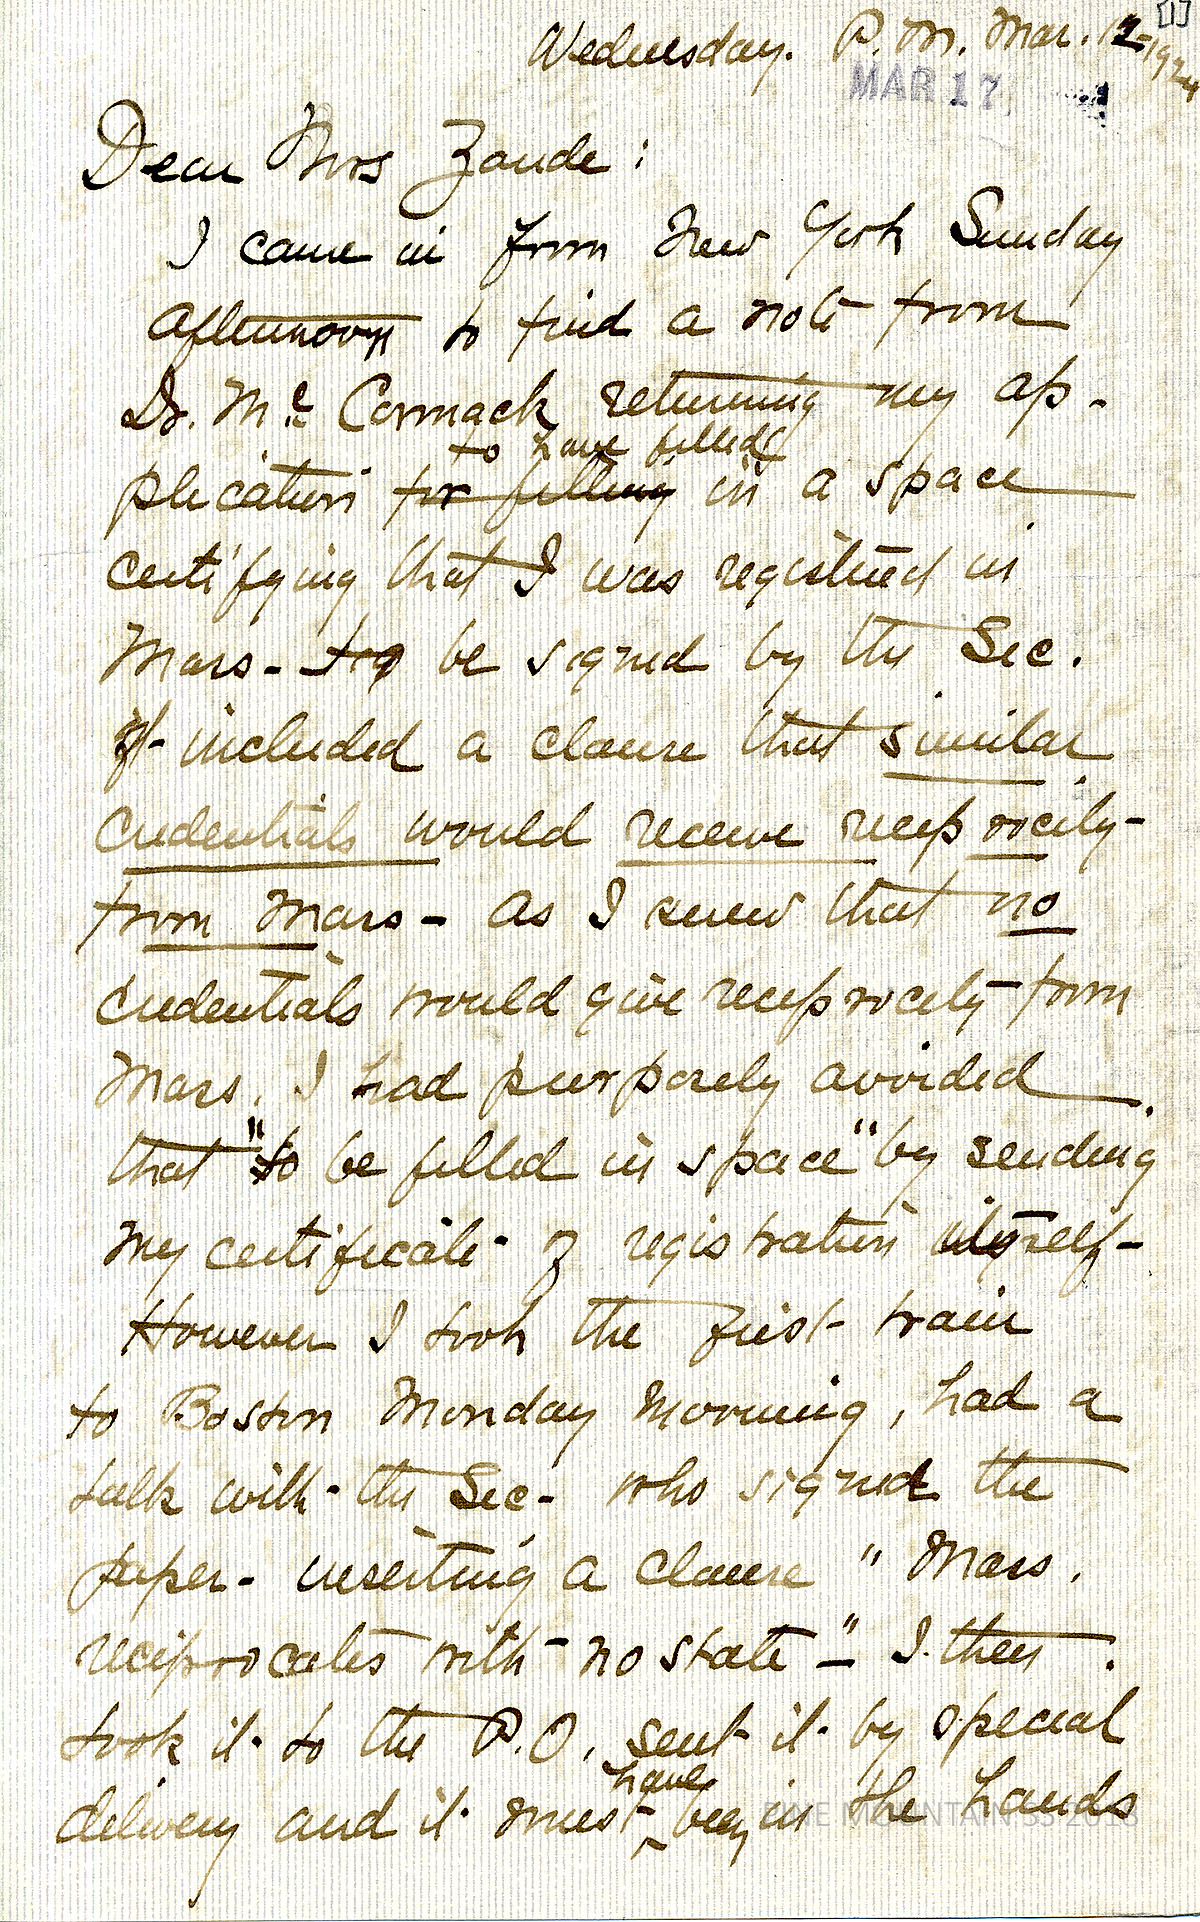 [1]
Wednesday. P.M. Mar. 12 - 1924
MAR 17
Dear Mrs Zande:
I came in from New York Sunday
afternoon to find a note from
Dr. Mc Cormack returning my ap-
to have filled
plication for filling in a space
certifying that I was registered in
Mass - to be signed by the Sec.
It included a clause that similar
credentials would receive reciprocity -
from Mass - As I knew that no
credentials would give reciprocity from
Mass. I had purposely avoided
that "to be filled in space" by sending
my certificate of registration myself -
However I took the first train
to Boston Monday morning, had a
talk with the Sec - who signed the
paper - inserting a clause "Mass.
reciprocates with no state -" I then
took it to the P.O. sent it by special
have
delivery and it must been in the hands
PINE MOUNTAIN SS 2018